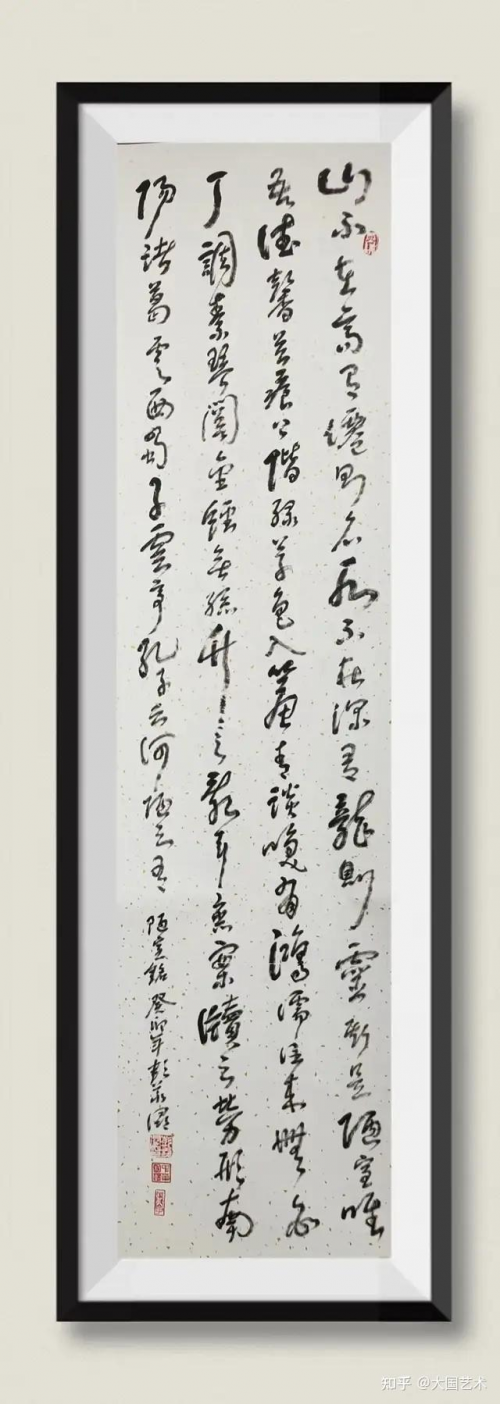 山不在高有僊則名水不在深有龍則靈斯是陋室唯
吾德馨苔痕上階綠草色入簾青談咲有鴻儒往來無白
丁調素琴閱金經無絲竹之亂耳無案牘之勞形南
陽諸葛廬西蜀子雲亭孔子云何陋之有
陋室銘癸卯年彭
知乎 @大国艺术